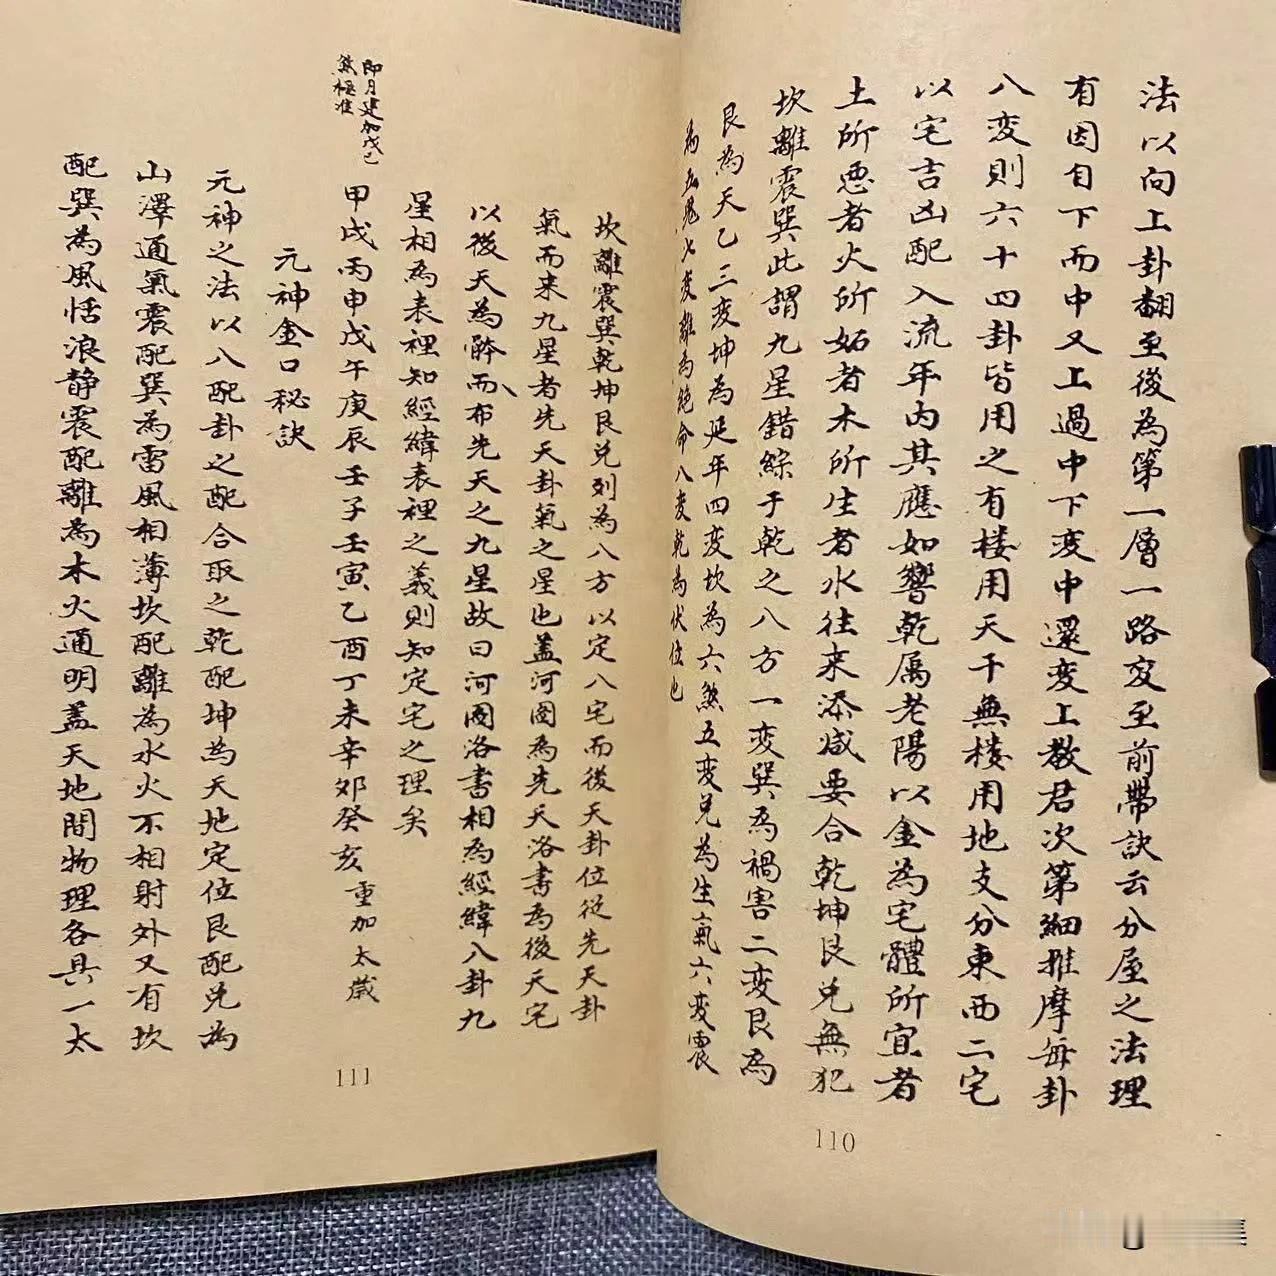 法以向上卦翻至後為第一層一路变至前帶訣云分屋之法理
有因自下而中又上過中下变中還变上教君次第細推摩每卦
八变則六十四卦皆用之有楼用天干無楼用地支分東西二宅
以宅吉凶配入流年内其應如響乾属老陽以金為宅體所宜者
土所恶者火所妬者木所生者水往来添减要合乾坤艮兑無犯
坎離震巽此謂九星錯綜于乾之八方一变巽為禍害二变艮為
艮為天乙三变坤為延年四变坎為六煞五变兑為生氣六变震
為五鬼七变離為絶命八变乾為伏位也
110
坎離震巽乾坤艮兑列為八方以定八宅而後天卦位従先天卦
氣而来九星者先天卦氣之星也蓋河圖為先天洛書為後天宅
以後天為體而布先天之九星故曰河圖洛書相為經緯八卦九
星相為表裡知經緯表裡之義則知定宅之理矣
即月建加戊己
煞極准
甲戌丙申戊午庚辰壬子壬寅乙酉丁未辛卯癸亥 重加太歲
元神金口秘訣
元神之法以八配卦之配合取之乾配坤為天地定位艮配兑為
山澤通氣震配巽為雷風相薄坎配離為水火不相射外又有坎
配巽為風恬浪静震配離為木火通明蓋天地間物理各具一太
111